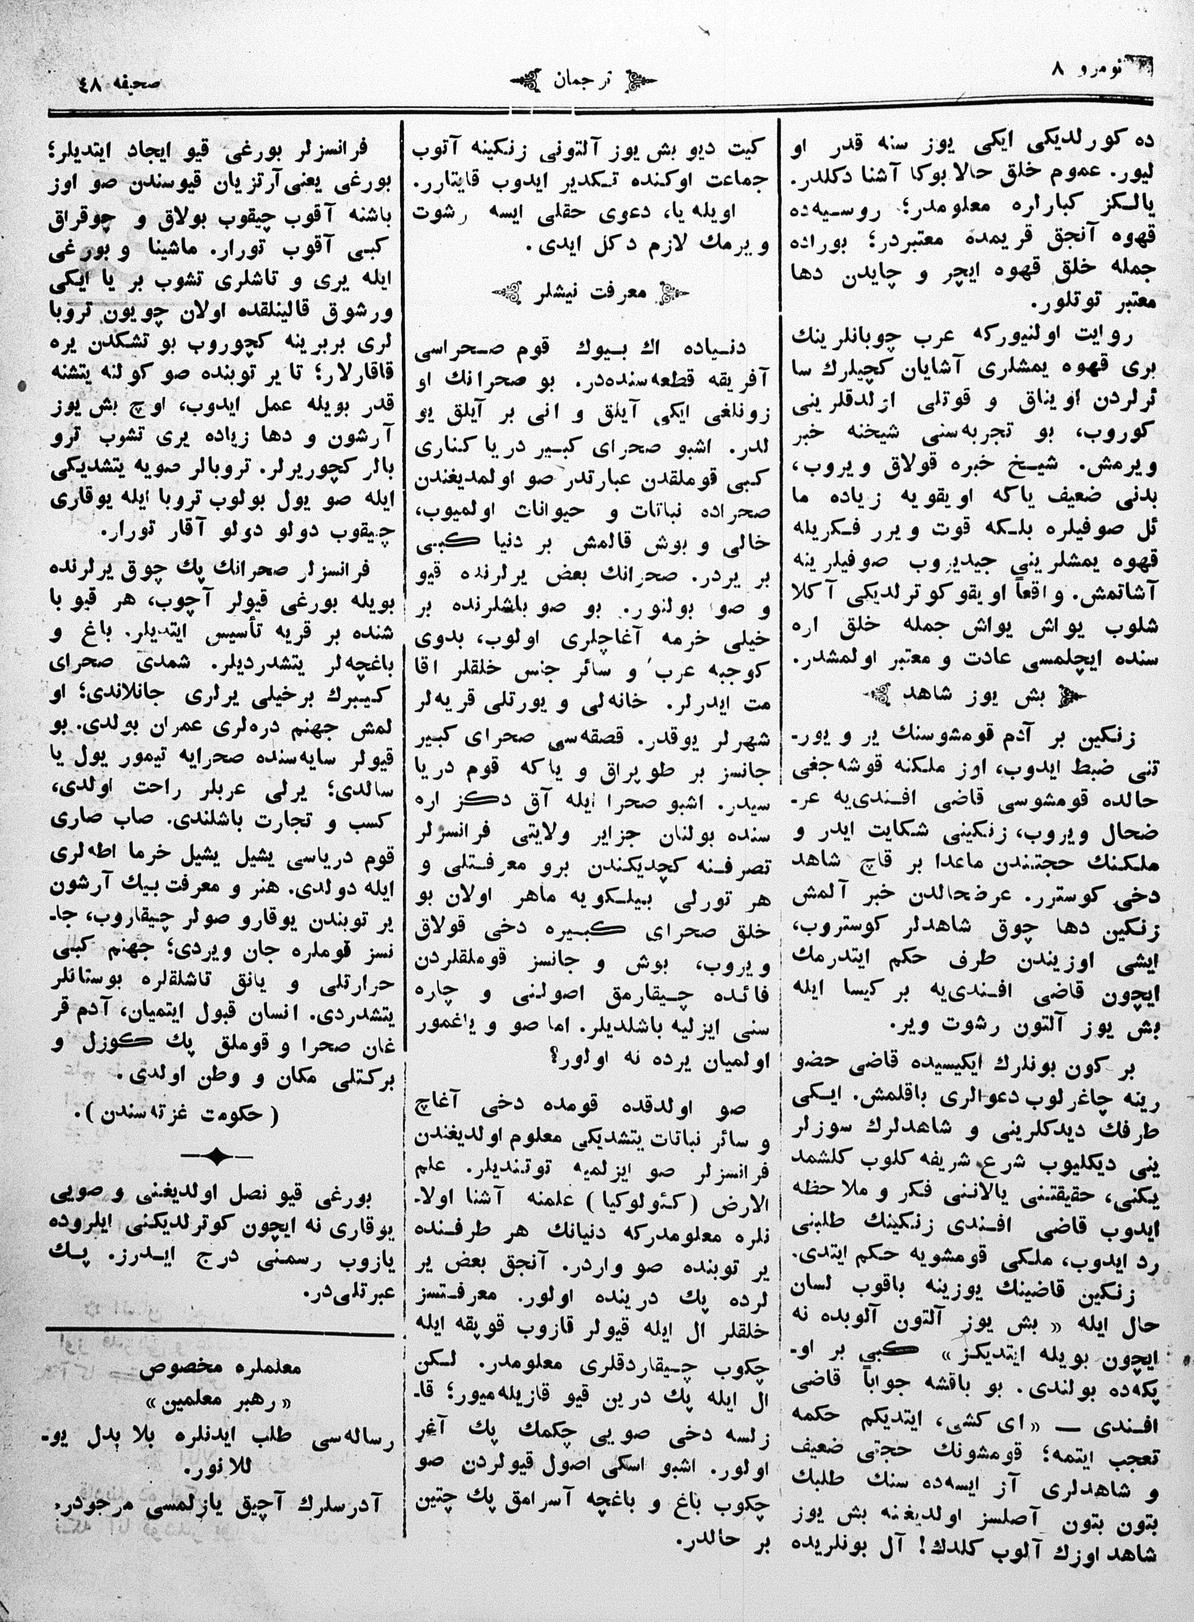 نومرو ٨
ترجمان
صحیفه ٤٨
ده کورلدیکی ایکی یوز سنه قدر او
لیور. عموم خلق حالا بوکا آشنا دکلدر.
یالـکز کبارلره معلومدر؛ روسـیه‌ده
قهوه آنجق قریمده معتبردر؛ بوراده
جمله خلق قهوه ایچر و چایدن دها
معتبر توتلور.
روایت اولنیورکه عرب چوبانلرینك
بری قهوه یمشلری آشایان کچیلرك سا
ئرلردن اویناق و قوتلی ازلدقلرینی
کوروب، بو تجربه‌سنی شیخنه خبر
ویرمش. شیـخ خبره قولاق ویروب،
بدنی ضعیف یاکه اویقویه زیاده ما
ئل صوفیلره بلـکه قوت ویرر فـکریله
قهوه یمشلرینی جیدیروب صوفیلرینه
آشاتمش. واقعاً اویقو کوترلدیکی آکلا
شلوب یواش یواش جمله خلق اره
سنده ایچلمسی عادت و معتبر اولمشدر.
بش یوز شاهد
زنکین بر آدم قومشوسنك یر و یور-
تنی ضبط ایدوب، اوز ملکنه قوشه‌جغی
حالده قومشوسی قاضی افـندی‌یه عر-
ضحال ویروب، زنکینی شکایت ایدر و
ملکنك حجتـندن ماعدا بر قاچ شاهد
دخی کوسترر. عرضحالدن خبر آلمش
زنکین دها چوق شاهدلر کوستروب،
ایشی اوزیندن طرف حکم ایتدرمك
ایچون قاضی افـندی‌یه بر کیسا ایله
بش یوز آلتون رشوت ویر.
بر کون بونلرك ایکیسیده قاضی حضو
رینه چاغرلوب دعوالری باقلمش. ایـکی
طرفك دیدکلرینی و شاهدلرك سوزلر
ینی دیکلیوب شرع شریفه کلوب کلشمد
یکنی، حقیقتنی یالانـنی فکر و ملاحظه
ایدوب قاضی افـندی زنکینك طلبنی
رد ایدوب، ملکی قومشویه حکم ایتدی.
زنکین قاضینك یوزینه باقوب لسان
حال ایله « بش یوز آلتون آلوبده نه
ایچون بویله ایتدیکز» کـبی بر او-
پکه‌ده بولندی. بو باقشه جواباً قاضی
افـندی — «ای کشی، ایتدیکم حکمه
تعجب ایتمه؛ قومشونك حجتی ضعیف
و شاهدلری آز ایسه‌ده سنك طلبك
بتون بتون آصلسز اولدیغنه بش یوز
شاهد اوزك آلوب کلدك! آل بونلریده
کیت دیو بش یوز آلتونی زنکینه آتوب
جماعت اوکنده تـکدیر ایدوب قایتارر.
اویله یا، دعوی حقلی ایسه رشوت
ویرمك لازم دکل ایدی.
معرفت نیشلر
دنـیاده اك بـیوك قوم صـحراسی
آفریقه قطعه‌سنده‌در. بو صحرانك او
زونلغی ایکی آیلق و انی بر آیلق یو
لدر. اشبو صحرای کبـیر دریا کناری
کـبی قوملقدن عبارتدر صو اولمدیغندن
صحراده نباتات و حیوانات اولمیوب،
خالی و بوش قالمش بر دنیا کـبی
بر یردر. صحرانك بعض یرلرنده قیو
و صو بولنور. بو صو باشلرنده بر
خیلی خرمه آغاچلری اولوب، بدوی
کوجبه عرب و سائر جنس خلقلر اقا
مت ایدرلر. خانه‌لی و یورتلی قریه‌لر
شهرلر یوقدر. قصقه‌سی صحرای کبیر
جانسز بر طوپراق و یاکه قوم دریا
سیدر. اشبو صحرا ایله آق دکز اره
سنده بولنان جزایر ولایتی فرانسزلر
تصرفـنه کچدیکندن برو معرفـتلی و
هر تورلی بیلـکویه ماهر اولان بو
خلق صحرای کبـیره دخی قولاق
ویروب، بوش و جانسز قوملقلردن
فائده چـیقارمق اصولـنی و چاره
سنی ایزلیه باشلدیلر. اما صو و یاغمور
اولمیان یرده نه اولور؟
صو اولدقده قومده دخی آغاچ
و سائر نباتات یتشدیکی معلوم اولدیغندن
فرانسزلر صو ایزلمیه توتندیلر. علم
الارض (کئولوکیا) علمنه آشنا اولا-
نلره معلومدرکه دنیانك هر طرفـنده
یر توبنده صو واردر. آنجق بعض یر
لرده پك درینده اولور. معرفـتسز
خلقلر ال ایله قیولر قازوب قوپقه ایله
چکوب چـیقاردقلری معلومدر. لـکن
ال ایله پك درین قیو قازیله‌میور؛ قا-
زلسه دخی صویی چکمك پك آغر
اولور. اشبو اسکی اصول قیولردن صو
چکوب باغ و باغچه آسرامق پك چتین
بر حالدر.
فرانسزلر بورغی قیو ایجاد ایتدیلر؛
بورغی یعنی آرتزیان قیوسندن صو اوز
باشنه آقوب چیقوب بولاق و چوقراق
کـبی آقوب تورار. ماشینا و بورغی
ایله یری و تاشلری تشوب بر یا ایکی
ورشوق قالینلقده اولان چویون تروبا
لری بربرینه کچوروب بو تشکدن یره
قاقارلار؛ تا یر توبنده صو کولنه یتشنه
قدر بویله عمل ایدوب، اوچ بش یوز
آرشون و دها زیاده یری تشوب ترو
بالر کچوریرلر. تروبالر صویه یتشدیکی
ایله صو یول بولوب تروبا ایله یوقاری
چیقوب دولو دولو آقار تورار.
فرانسزلر صحرانك پك چوق یرلرنده
بویله بورغی قیولر آچوب، هر قیو با
شنده بر قریه تأسیس ایتدیلر. باغ و
باغچه‌لر یتشدردیلر. شمدی صحرای
کبیرك برخیلی یرلری جانلاندی؛ او
لمش جهنم دره‌لری عمران بولدی. بو
قیولر سایه‌سنده صحرایه تیمور یول یا
سالدی؛ یرلی عربلر راحت اولدی،
کسب و تجارت باشلندی. صاب صاری
قوم دریاسی یشیل یشیل خرما اطه‌لری
ایله دولدی. هنر و معرفت بیك آرشون
یر توبندن یوقارو صولر چیقاروب، جا-
نسز قوملره جان ویردی؛ جهنم کـبی
حرارتلی و یانق تاشلقلره بوستانلر
یتشدردی. انسان قبول ایتمیان، آدم قر
غان صحرا و قوملق پك کـوزل و
برکتلی مکان و وطن اولدی.
(حکومت غزته‌سندن).
بورغی قیو نصل اولدیغنی و صویی
یوقاری نه ایچون کوترلدیکنی ایلروده
یازوب رسمنی درج ایـدرز. پـك
عبرتلی‌در.
معلملره مخصوص
«رهبر معلمین»
رساله‌سی طلب ایدنلره بلا بدل یو-
للانور.
آدرسلرك آچیق یازلمسی مرجودر.